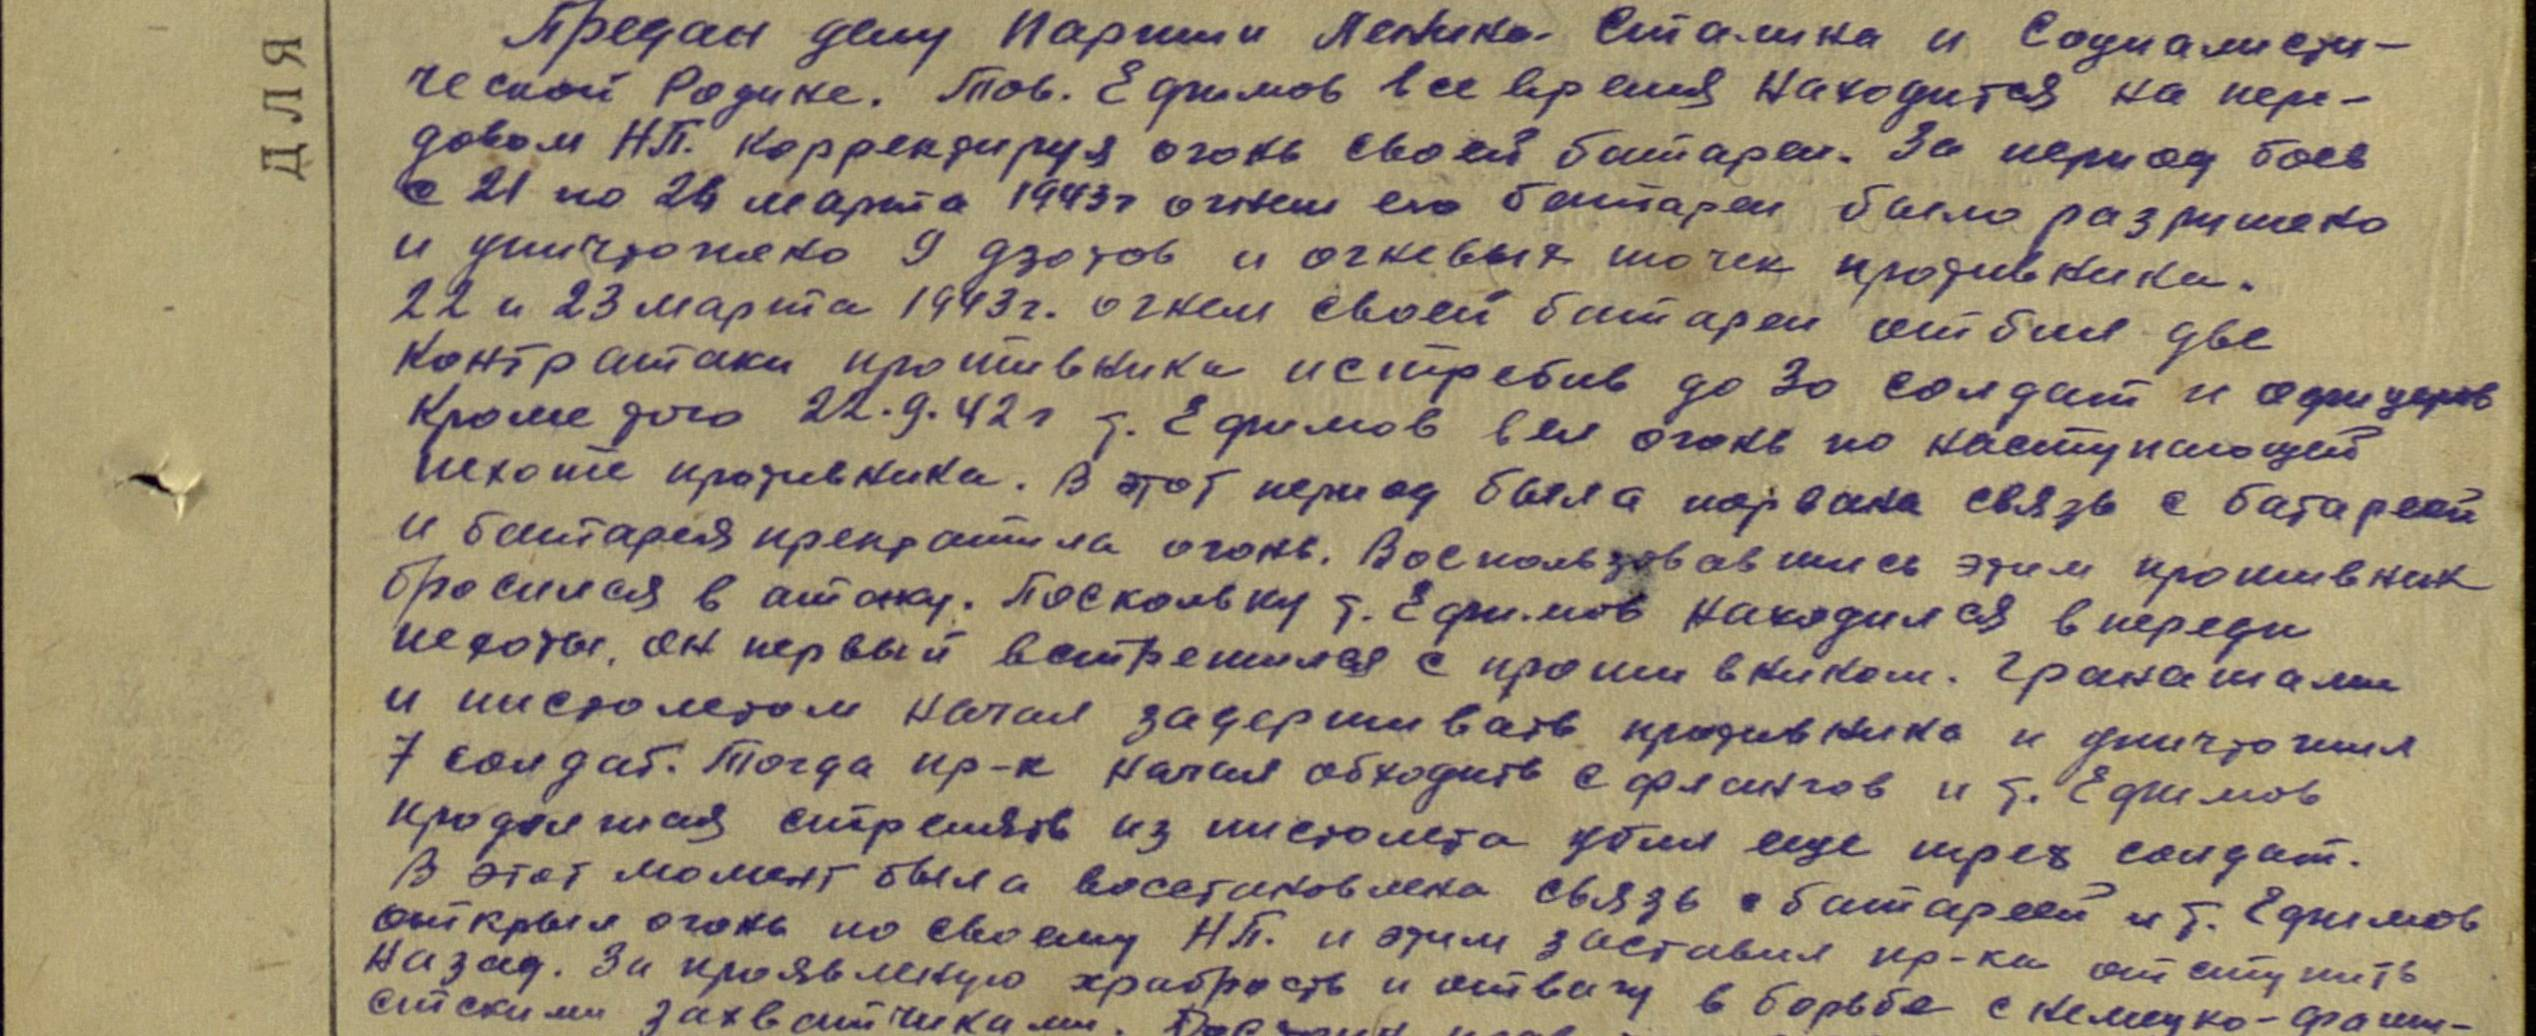 ДЛЯ
Предан делу Партии Ленина Сталина и Социалисти-
ческой Родине. Тов. Ефимов все время находится на пере-
довом НП. корректируя огонь своей батареи. За период боев
с 21 по 24 марта 1943г огнем его батареи было разрушено
и уничтожено 9 дзотов и огневых точек противника.
22 и 23 марта 1943г. огнем своей батареи отбил две
контратаки противника истребив до 30 солдат и офицеров
Кроме того 22.9.42г т. Ефимов вел огонь по наступающей
пехоте противника. В этот период была порвана связь с батареей
и батарея прекратила огонь. Воспользовавшись этим противник
бросился в атаку. Поскольку т. Ефимов находился впереди
пехоты, он первый встретился с противником. Гранатами
и пистолетом начал задерживать противника и уничтожил
7 солдат. Тогда пр-к начал обходить с флангов и т. Ефимов
продолжая стрелять из пистолета убил еще трех солдат.
В этот момент была восстановлена связь с батареей и т. Ефимов
открыл огонь по своему НП. и этим заставил пр-ка отступить
назад. За проявленную храбрость и отвагу в борьбе с немецко-фаши-
стскими захватчиками.